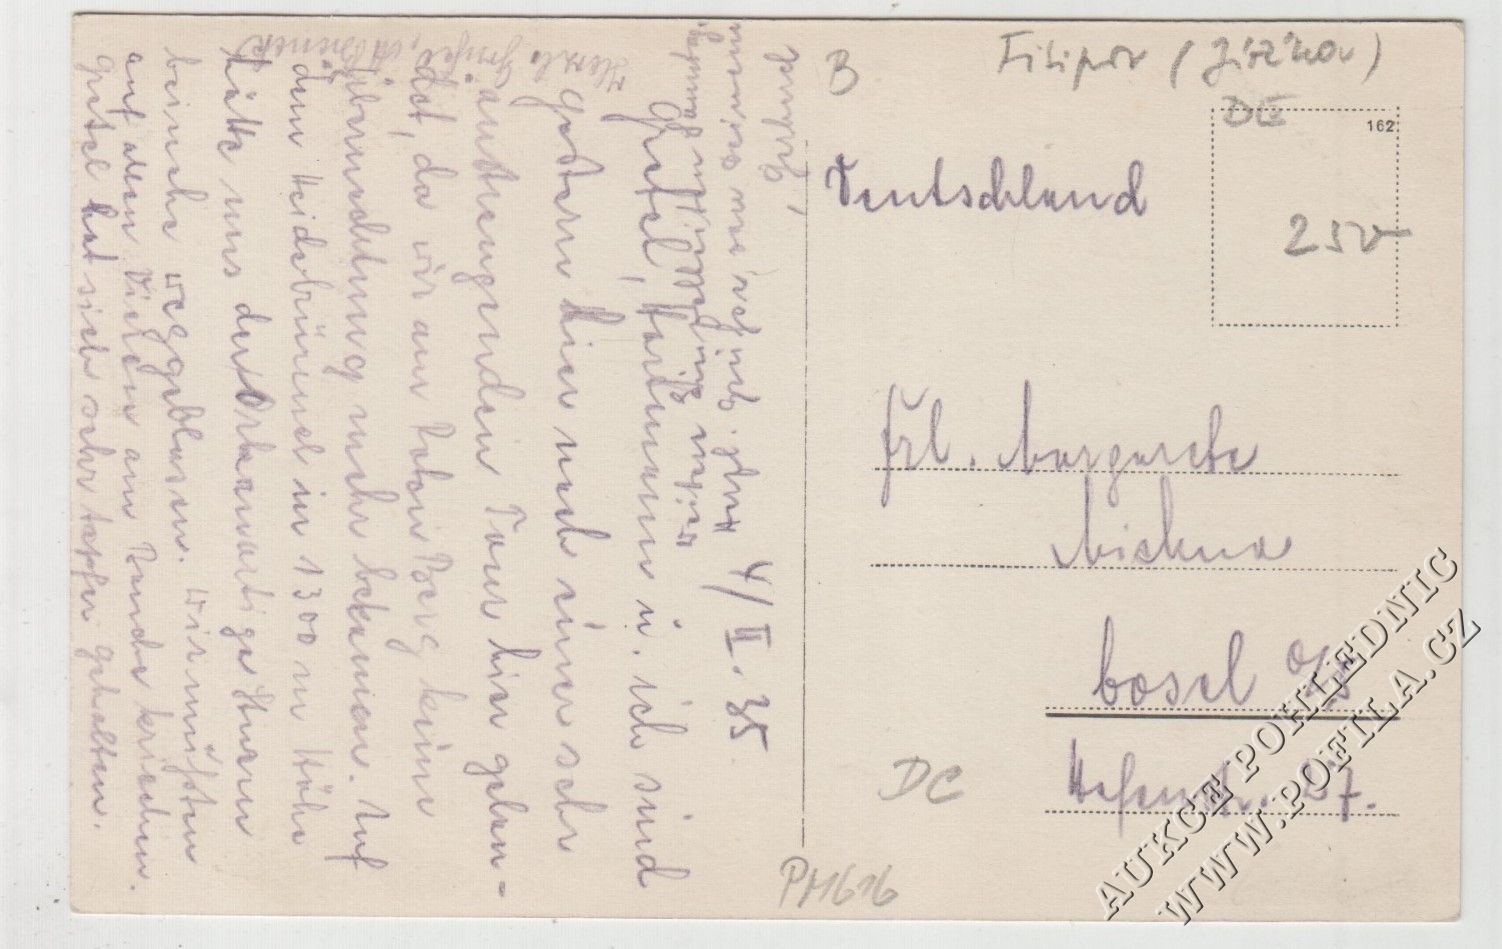 B
Filipov (Jiříkov)
DE
162
250
Deutschland
Frl. Margarete
Miekna
Cosel O/S
Hafenstr. 27.
DC
PM616
4/II. 35
Gretel, Hartmann u. ich sind
gestern hier nach einer sehr
anstrengenden Tour hier gelan-
det, da wir am hohen Berg keine
Übernachtung mehr bekamen. Auf
dem Heidebrünnel in 1300 m Höhe
hätte uns der orkanartige Sturm
beinahe weggeblasen. Wir mußten
auf allen Vieren am Rande kriechen.
Gretel hat sich sehr tapfer gehalten.
AUKCE POHLEDNIC
WWW.POFILA.CZ